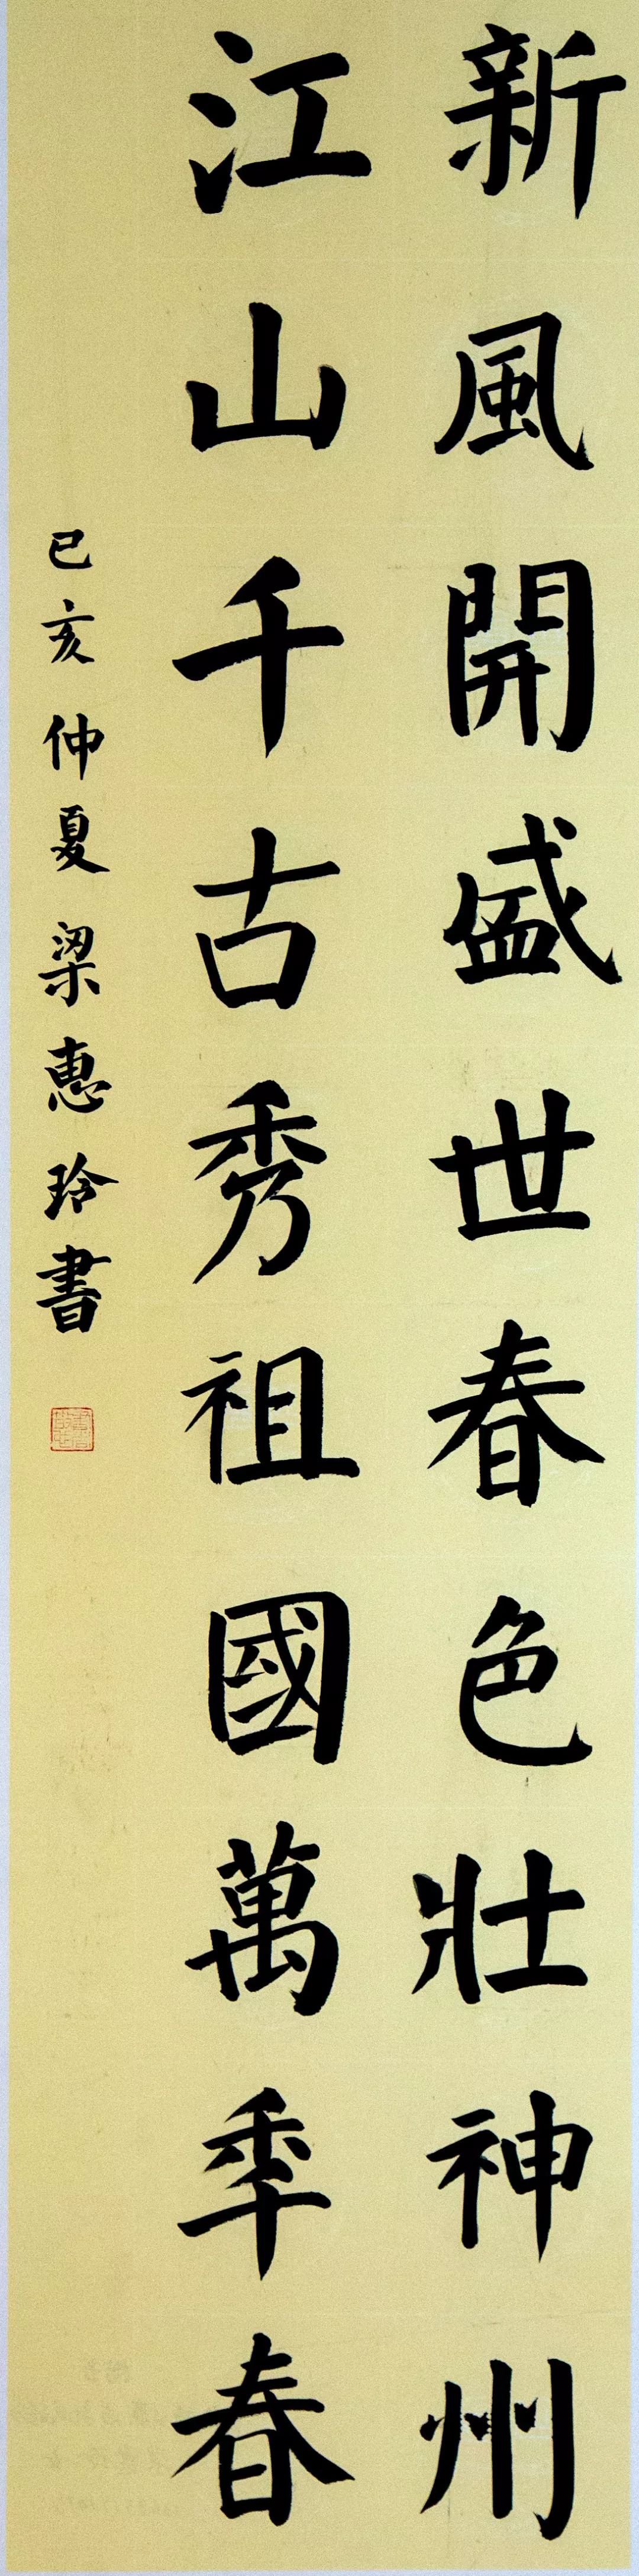 新風開盛世春色壯神州
江山千古秀祖國萬秊春
己亥仲夏梁惠玲書